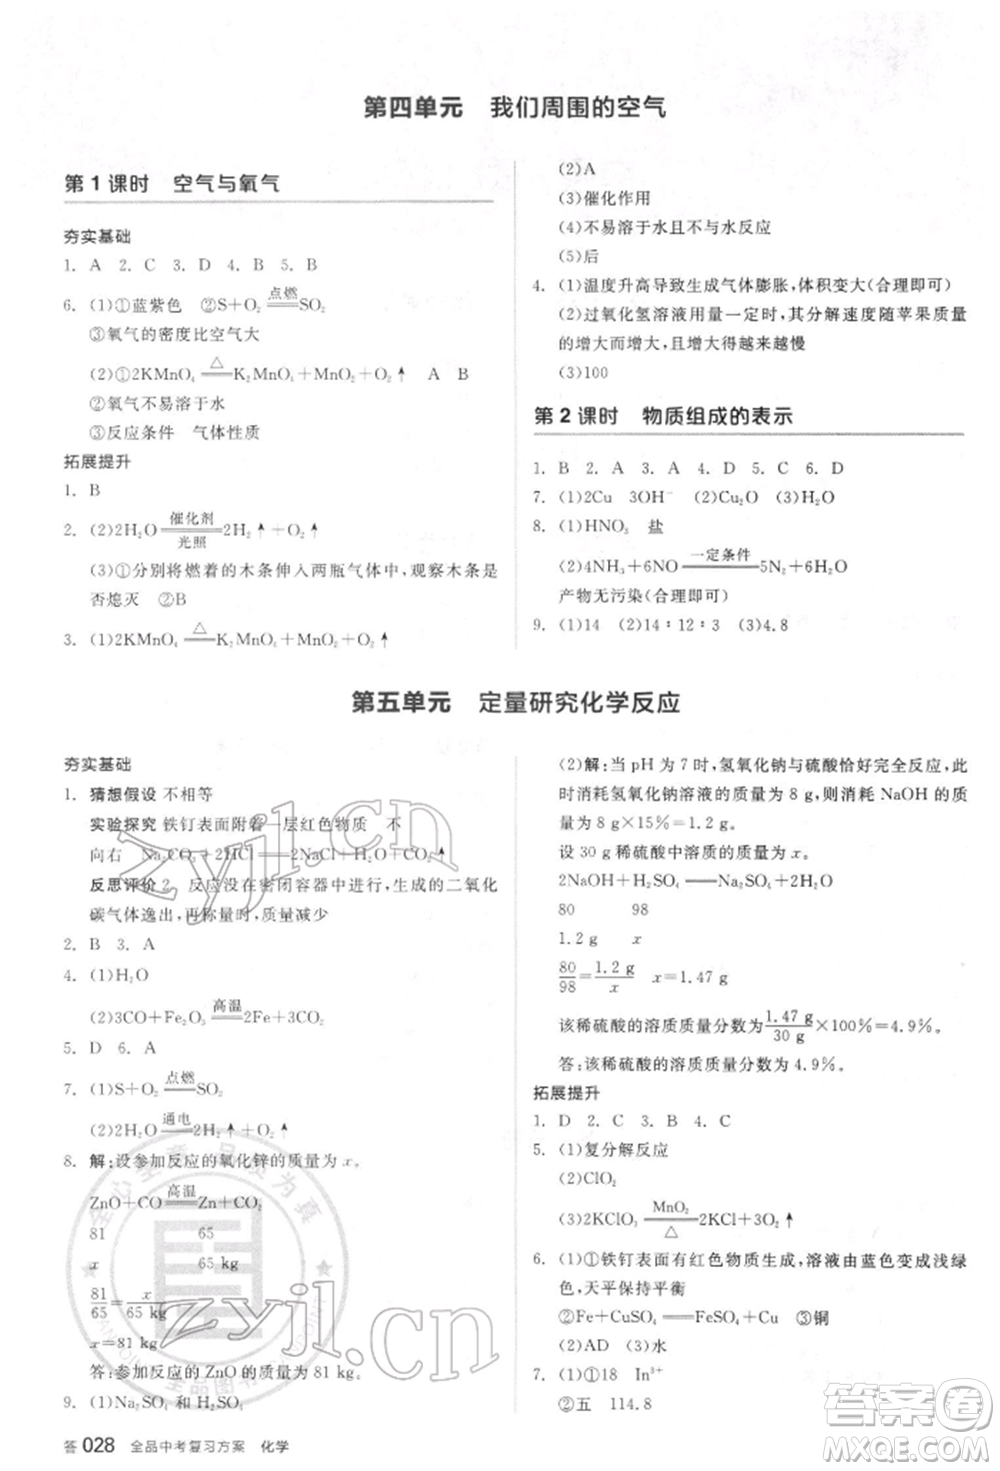 第四单元 我们周围的空气
第1课时 空气与氧气
夯实基础
1. A 2. C 3. D 4. B 5. B
6. (1)①蓝紫色 ②S+O₂ 点燃══ SO₂
③氧气的密度比空气大
(2)①2KMnO₄ △══ K₂MnO₄+MnO₂+O₂↑ A B
②氧气不易溶于水
③反应条件 气体性质
拓展提升
1. B
2. (2)2H₂O 催化剂══光照 2H₂↑+O₂↑
(3)①分别将燃着的木条伸入两瓶气体中,观察木条是
否熄灭 ②B
3. (1)2KMnO₄ △══ K₂MnO₄+MnO₂+O₂↑
(2)A
(3)催化作用
(4)不易溶于水且不与水反应
(5)后
4. (1)温度升高导致生成气体膨胀,体积变大(合理即可)
(2)过氧化氢溶液用量一定时,其分解速度随苹果质量
的增大而增大,且增大得越来越慢
(3)100
第2课时 物质组成的表示
1. B 2. A 3. A 4. B 5. C 6. D
7. (1)2Cu 3OH⁻ (2)Cu₂O (3)H₂O
8. (1)HNO₃ 盐
(2)4NH₃+6NO 一定条件══ 5N₂+6H₂O
产物无污染(合理即可)
9. (1)14 (2)14∶12∶3 (3)4.8
第五单元 定量研究化学反应
夯实基础
1. 猜想假设 不相等
实验探究 铁钉表面附着一层红色物质 不
向右 Na₂CO₃+2HCl══2NaCl+H₂O+CO₂↑
反思评价 2 反应没在密闭容器中进行,生成的二氧化
碳气体逸出,再称量时,质量减少
2. B 3. A
4. (1)H₂O
(2)3CO+Fe₂O₃ 高温══ 2Fe+3CO₂
5. D 6. A
7. (1)S+O₂ 点燃══ SO₂
(2)2H₂O 通电══ 2H₂↑+O₂↑
8. 解:设参加反应的氧化锌的质量为 x。
ZnO+CO 高温══ Zn+CO₂
81 65
x 65 kg
81/65=x/65 kg
x=81 kg
答:参加反应的 ZnO 的质量为 81 kg。
9. (1)Na₂SO₄ 和 H₂SO₄
(2)解:当 pH 为 7 时,氢氧化钠与硫酸恰好完全反应,
此时消耗氢氧化钠溶液的质量为 8 g,则消耗 NaOH 的质
量为 8 g×15%=1.2 g。
设 30 g 稀硫酸中溶质的质量为 x。
2NaOH+H₂SO₄══Na₂SO₄+2H₂O
80 98
1.2 g x
80/98=1.2 g/x x=1.47 g
该稀硫酸的溶质质量分数为1.47 g/30 g×100%=4.9%。
答:该稀硫酸的溶质质量分数为 4.9%。
拓展提升
1. D 2. C 3. B 4. C
5. (1)复分解反应
(2)ClO₂
(3)2KClO₃ MnO₂══△ 2KCl+3O₂↑
6. (1)①铁钉表面有红色物质生成,溶液由蓝色变成浅绿
色,天平保持平衡
②Fe+CuSO₄══FeSO₄+Cu ③铜
(2)AD (3)水
7. (1)①18 In³⁺
②五 114.8
答 028 全品中考复习方案 化学
zyjl.cn
zyjl.cn
全心全意 品质为真
全品图书
答案圈
MXQE.COM